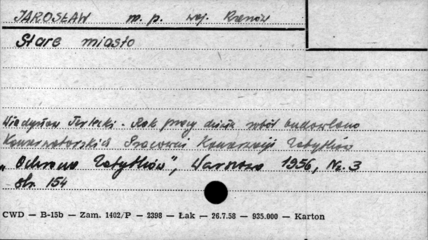 JAROSŁAW m. p. woj. Rzeszów
Stare miasto
Władysław Terlecki - Rok pracy działu robót budowlano
Konserwatorskich Pracowni Konserwacji Zabytków
„Ochrona Zabytków", Warszawa 1956, Nr. 3
str. 154
CWD — B-15b — Zam. 1402/P — 2398 — Łak — 26.7.58 — 935.000 — Karton